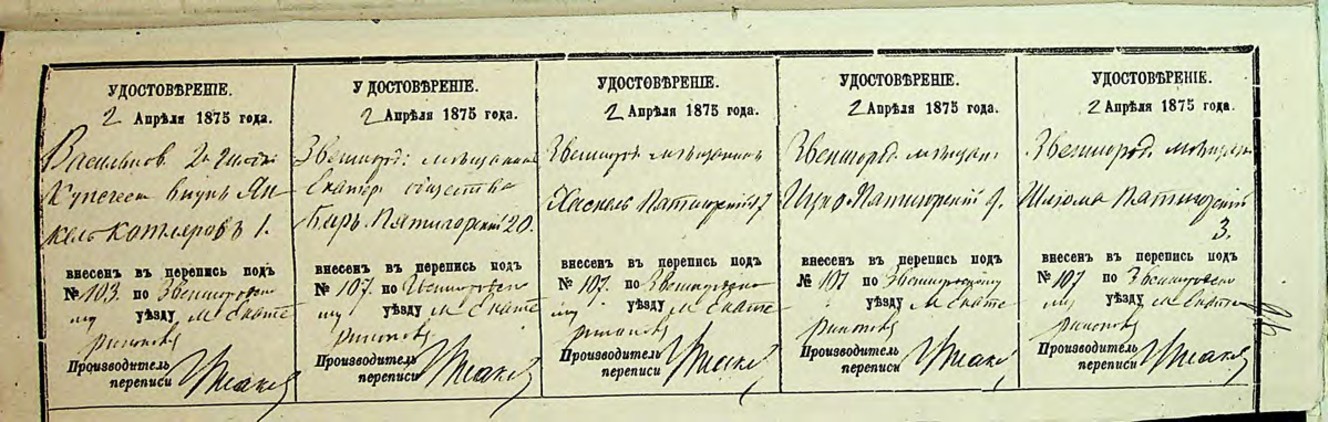 УДОСТОВѢРЕНІЕ.
2 Апрѣля 1875 года.
Васильков. 2й
Купечес внукъ Ян-
кель Котляровъ 1.
внесенъ въ перепись подъ
№ 103. по Звенигородско
му уѣзду м Екате
ринополь
Производитель
переписи
У ДОСТОВѢРЕНІЕ.
2 Апрѣля 1875 года.
Звенигор: мѣщанинъ
Екатер. общества
Беръ. Пятигорскій 20.
внесенъ въ перепись подъ
№ 107. по Звенигородско
му уѣзду м Екате
ринополь
Производитель
переписи
УДОСТОВѢРЕНІЕ.
2 Апрѣля 1875 года.
Звенигор. мѣщанинъ
Хаскель Пятигорскій 17
внесенъ въ перепись подъ
№ 107. по Звенигородско
му уѣзду м Екате
ринополь
Производитель
переписи
УДОСТОВѢРЕНІЕ.
2 Апрѣля 1875 года.
Звенигород. мѣщан:
Ицко Пятигорскій 9.
внесенъ въ перепись подъ
№ 107 по Звенигородскому
уѣзду м Екате
ринополь
Производитель
переписи
УДОСТОВѢРЕНІЕ.
2 Апрѣля 1875 года.
Звенигород. мѣщан
Шлёма Пятигорскій
3.
внесенъ въ перепись подъ
№ 107 по Звенигородско
му уѣзду м Екате
ринополь
Производитель
переписи